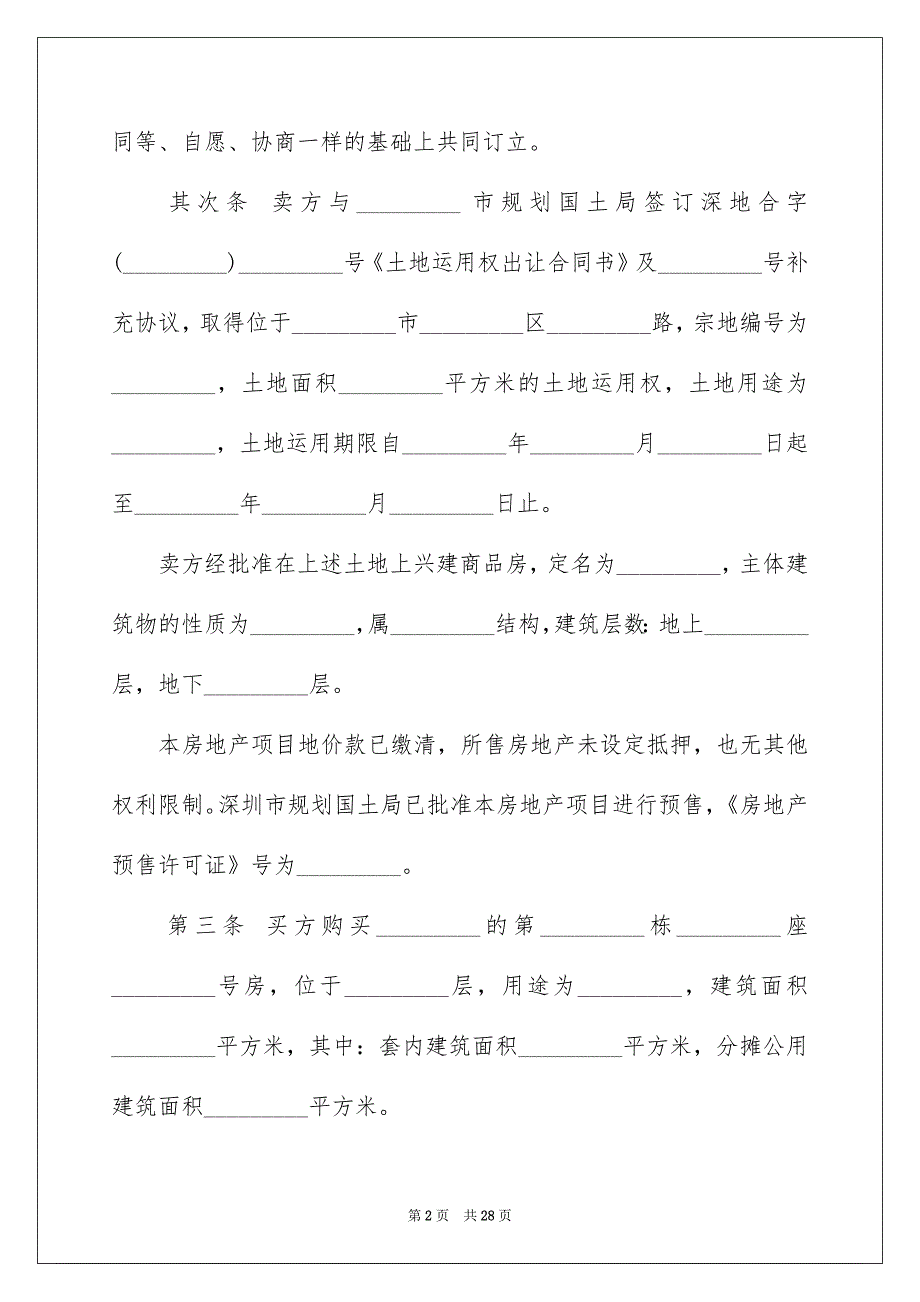 同等、自愿、协商一样的基础上共同订立。
其次条 卖方与_________市规划国土局签订深地合字
(_________)_________号《土地运用权出让合同书》及_________号补
充协议，取得位于_________市_________区_________路，宗地编号为
_________，土地面积_________平方米的土地运用权，土地用途为
_________，土地运用期限自_________年_________月_________日起
至_________年_________月_________日止。
卖方经批准在上述土地上兴建商品房，定名为_________，主体建
筑物的性质为_________，属_________结构，建筑层数：地上_________
层，地下_________层。
本房地产项目地价款已缴清，所售房地产未设定抵押，也无其他
权利限制。深圳市规划国土局已批准本房地产项目进行预售，《房地产
预售许可证》号为_________。
第三条 买方购买_________的第_________栋_________座
_________号房，位于_________层，用途为_________，建筑面积
_________平方米，其中：套内建筑面积_________平方米，分摊公用
建筑面积_________平方米。
第 2 页 共 28 页